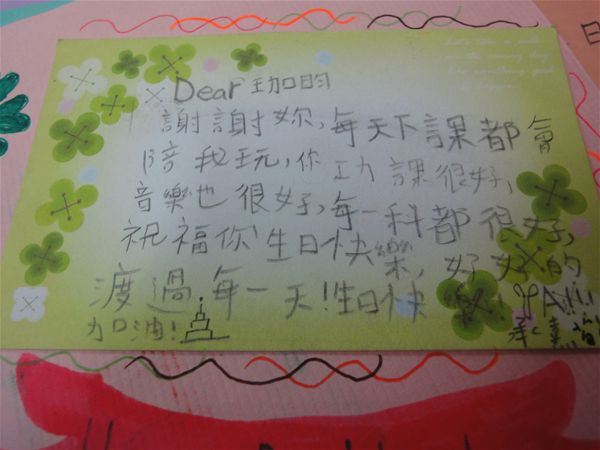 Dear 珈昀
謝謝妳,每天下課都會
陪我玩,你功課很好,
音樂也很好,每一科都很好,
祝福你生日快樂,好好的
渡過每一天!生日快樂!YA!!!
加油!